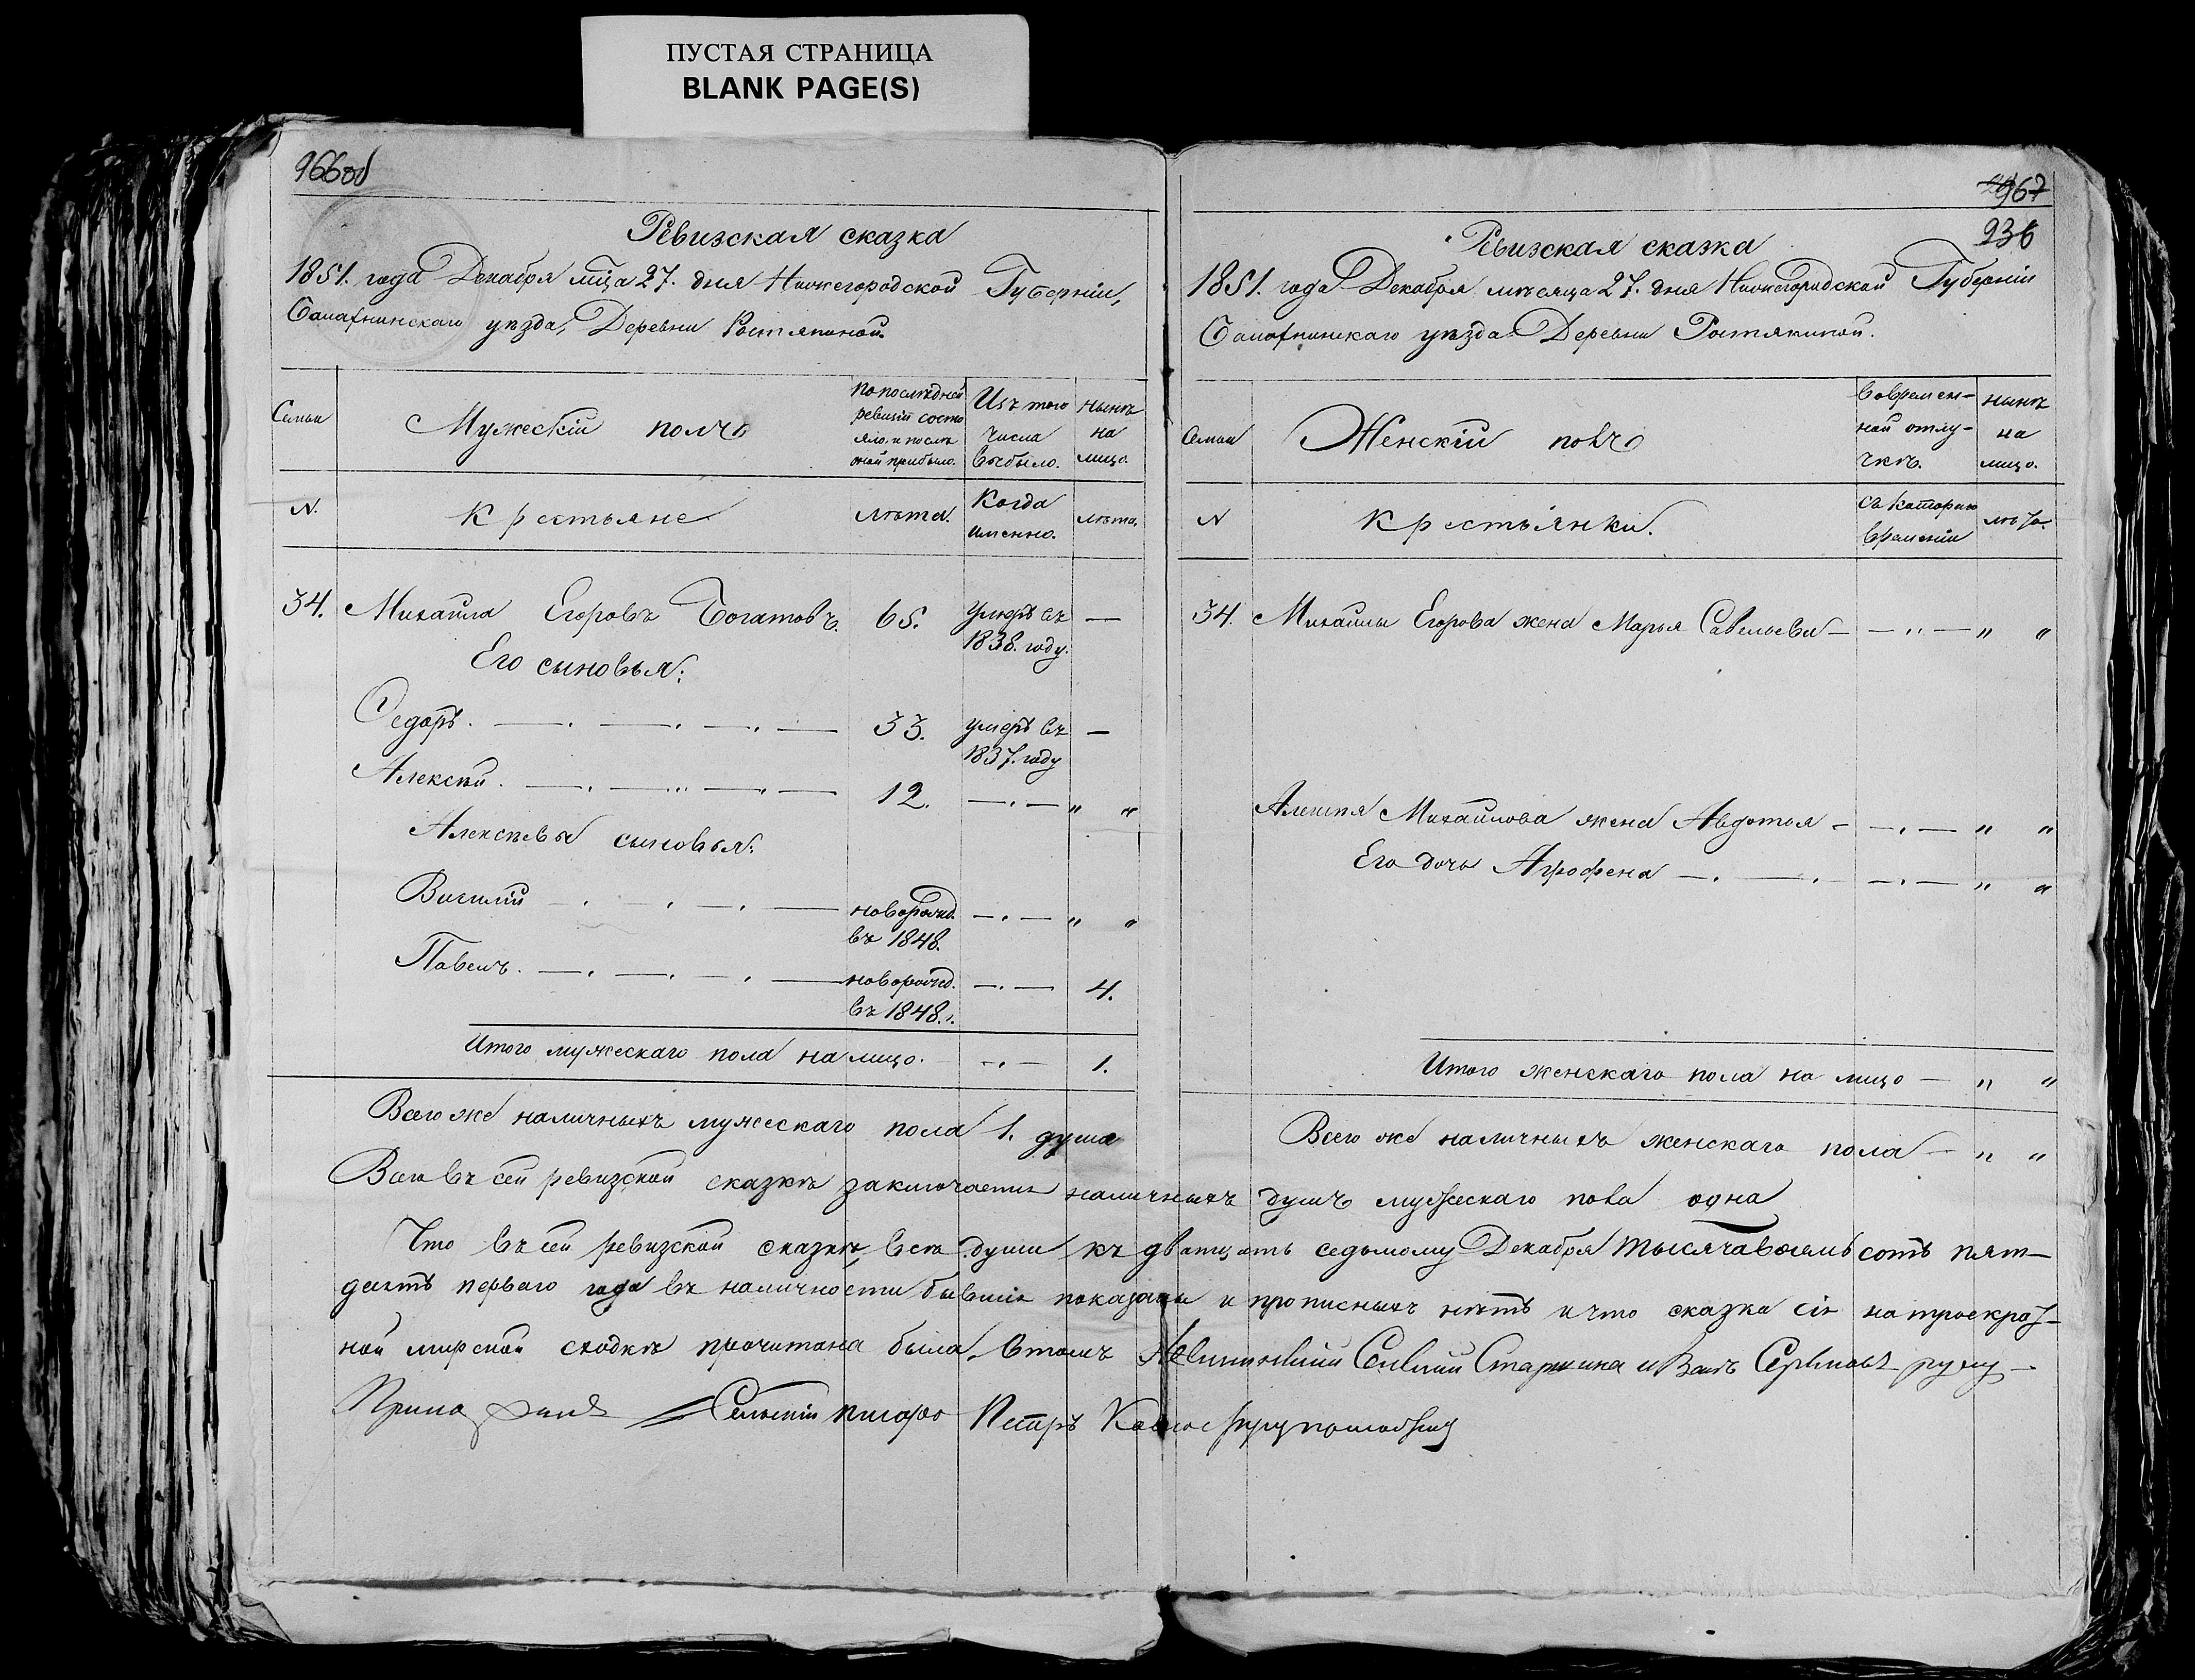 ПУСТАЯ СТРАНИЦА
BLANK PAGE(S)
966об
Ревизская сказка
1851. года Декабря мѣца 27. дня Нижегородской Губерніи,
Балахнинскаго уѣзда, Деревни Ростяпиной.
Семьи
Мужескій полъ
По послѣдней ревизіи состояло и послѣ оной прибыло.
Изъ того числа выбыло.
нынѣ на лицо.
N.
Крестьяне
лѣта.
Когда именно.
лѣта.
34. Михаила Егоровъ Богатовъ. 65. умеръ въ —
1838. году.
Его сыновья:
Федоръ. 33. умеръ въ —
1837. году
Алексѣй. 12. — „ „
Алексѣвы сыновья:
Василій новорожд. — „ „
въ 1848.
Павелъ. новорожд. — 4.
въ 1848.
Итого мужескаго пола на лицо. — 1.
Всего же наличныхъ мужескаго пола 1. душа
967
936
Ревизская сказка
1851. года Декабря мѣсяца 27. дня Нижегородской Губерніи
Балахнинскаго уѣзда Деревни Ростяпиной.
Семьи
Женскій полъ
Во временной отлучкѣ.
нынѣ на лицо.
N
Крестьянки.
Съ котораго времени
лѣта.
34. Михаилы Егорова жена Марья Савельева — „ „
Алексѣя Михайлова жена Авдотья — „ „
Его дочь Агрофена — „ „
Итого женскаго пола на лицо — „ „
Всего же наличныхъ женскаго пола — „ „
Всего въ сей ревизской сказкѣ заключается наличныхъ душъ мужескаго пола одна
Что въ сей ревизской сказкѣ, все души къ дватцать седьмому Декабря тысяча восемь сотъ пят-
десятъ перваго года въ наличности бывшія показаны и прописныхъ нѣтъ и что сказка сія на троекрат-
ной мирской сходкѣ прочитана была. Втомъ Сельскій Старшина Иванъ руку
Сельскій писарь Петръ